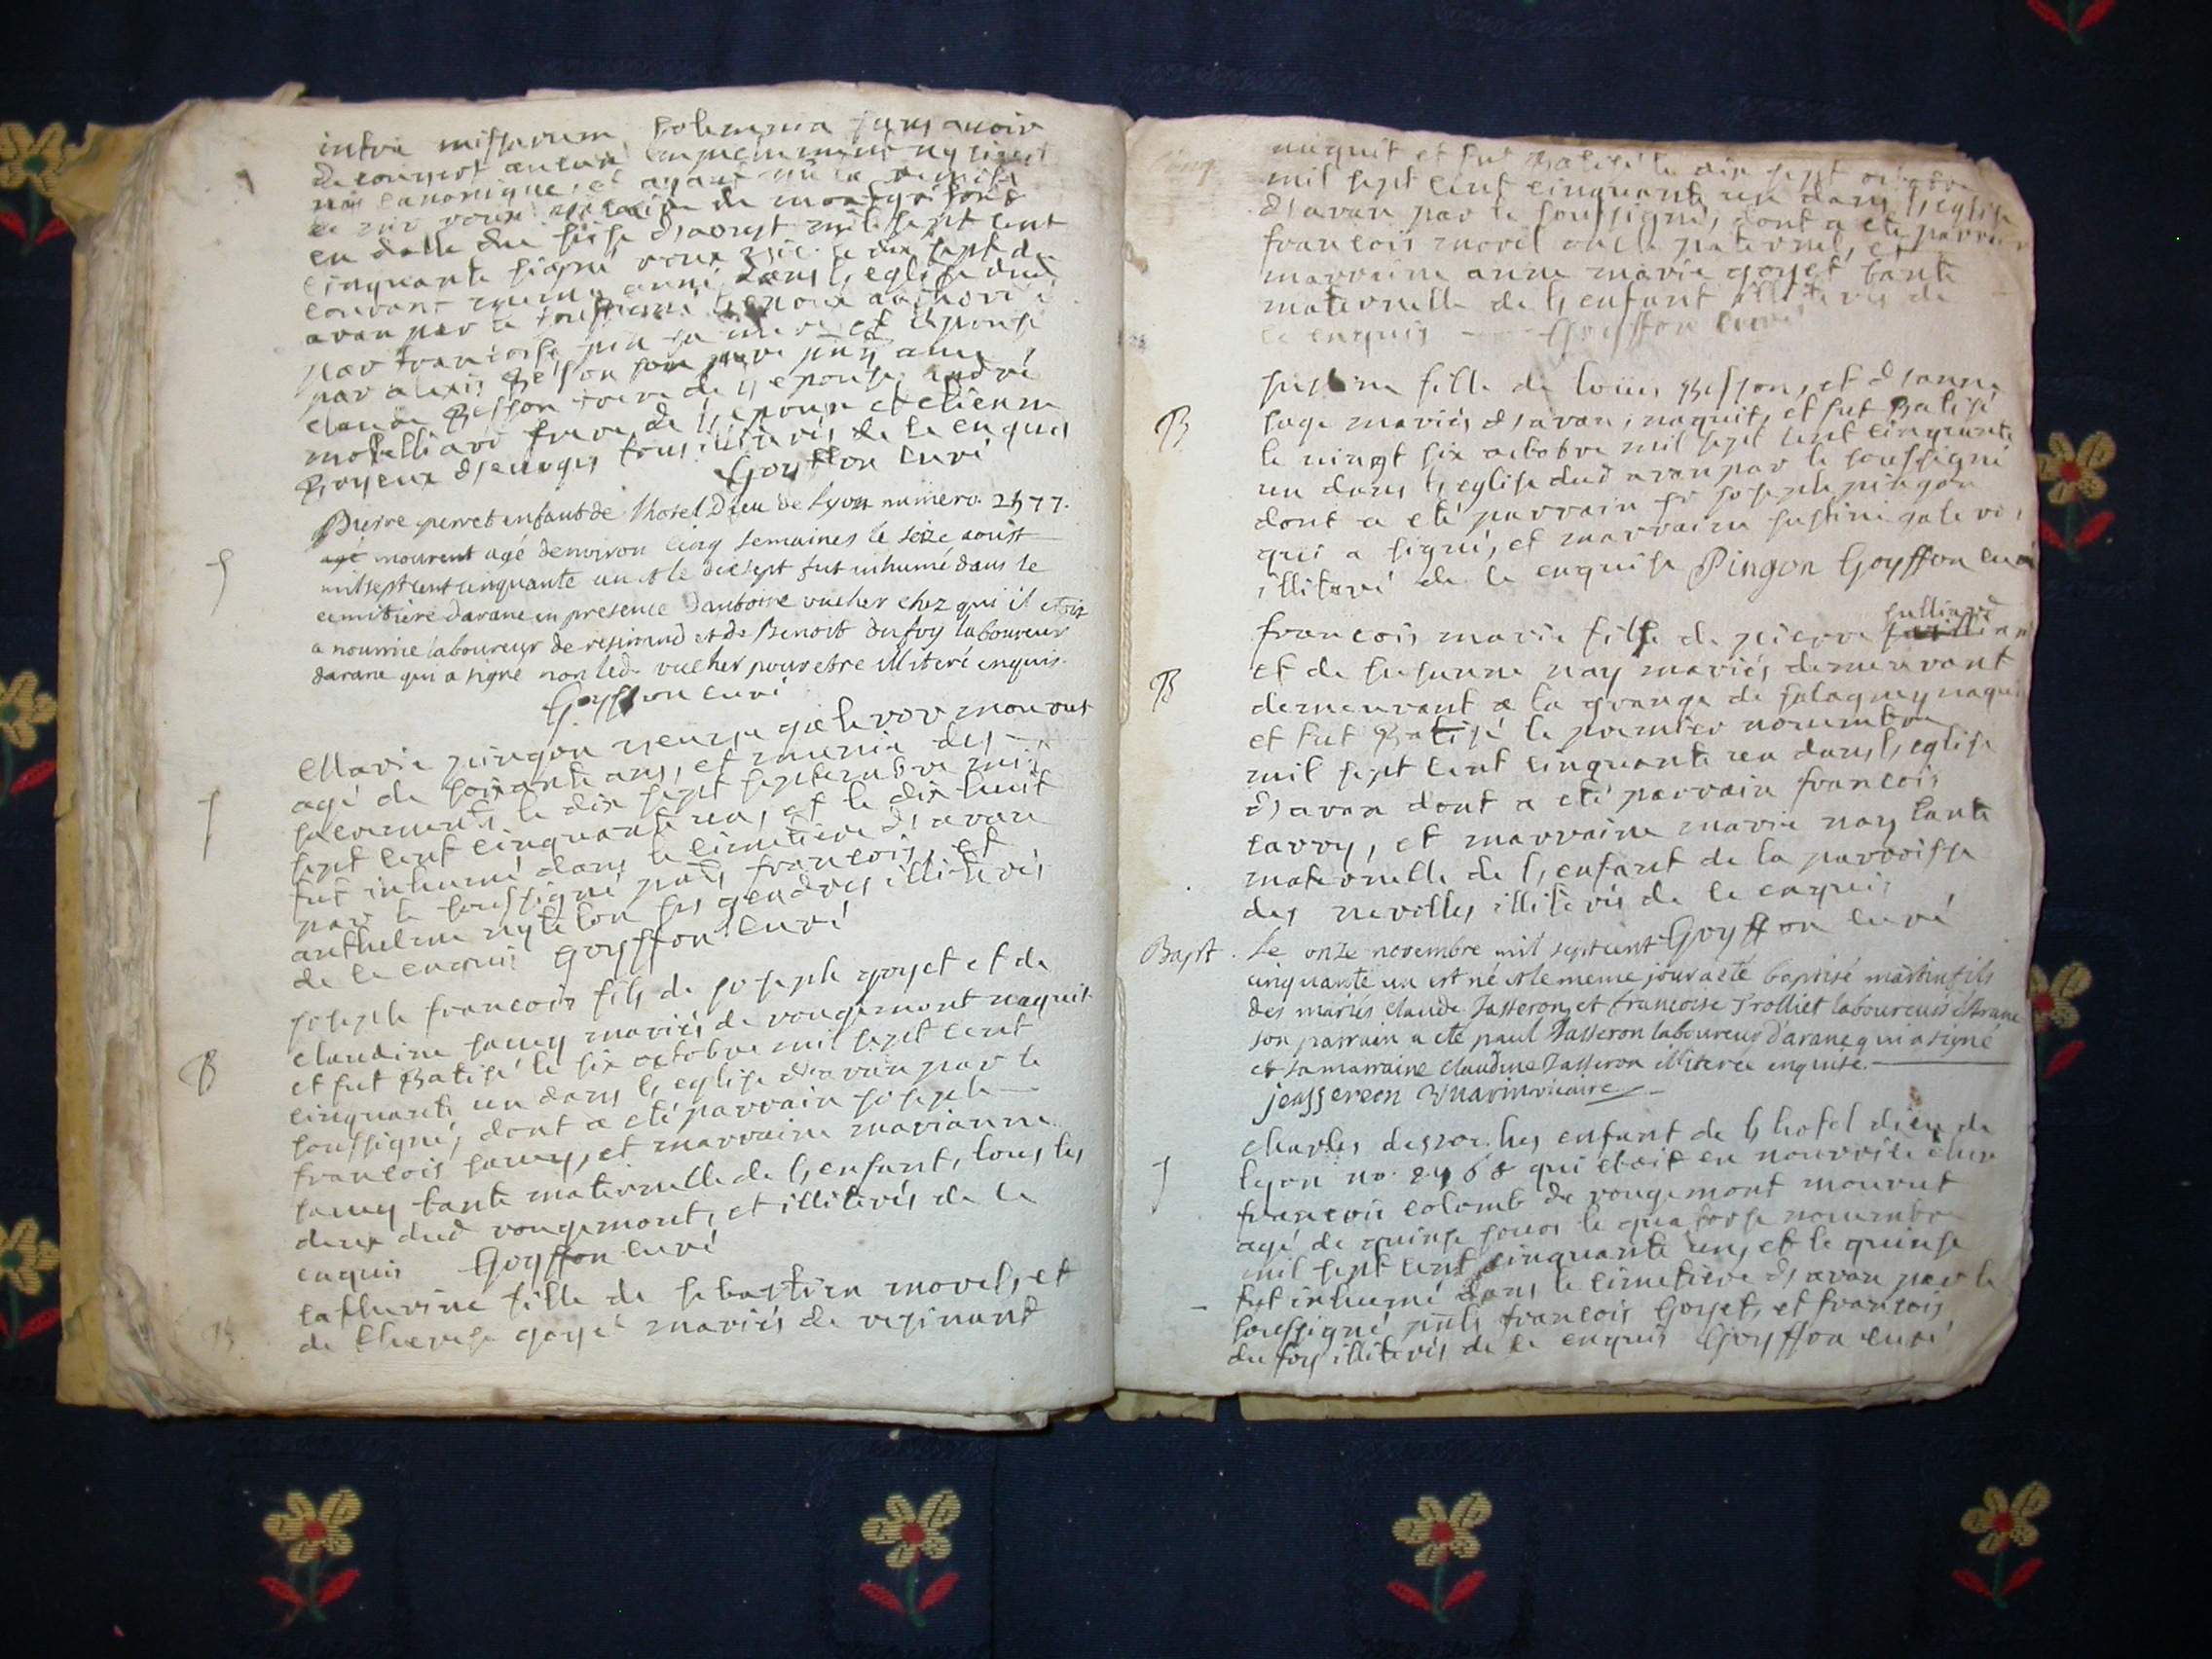 intra missarum solemnia sans avoir
decouvert aucun empechement ny civil
ny canonique, et ayant
en datte du d'aoust mil sept cent
cinquante signé le dix sept du
courant dans l'eglise dud
aran par le soussigné l'epoux authorisé
par francoise sa mere et l'epouse
par alexis Besson son pere
claude Besson frere de l'epouse, andré
frere de l'epoux et etienne
Boyeux d'evoges tous illiterés de ce enquis
Goyffon curé
Pierre perret enfant de l'hotel Dieu de Lyon numero 2577.
agé mourut agé denviron cinq semaines le seize aoust
mil sept cent cinquante un et le dixsept fut inhumé dans le
cemitière darane en presence dantoine vucher chez qui il etoit
a nourrice laboureur de resinand et de Benoit dufoy laboureur
darane qui a signé non led. vucher pour etre illiteré enquis.
Goyffon curé
Marie pingon veuve galevor mourut
agé de soixante ans, et munie des
sacrements le dix sept septembre mil
sept cent cinquante un, et le dix huit
fut inhumé dans le cimetiere d'aran
par le soussigné pnts francois, et
anthelme ses gendres illiterés
de ce enquis Goyffon curé
B
joseph francois fils de joseph goyet et de
claudine savey mariés de rougemont naquit
et fut Batisé le six octobre mil sept cent
cinquante un dans l'eglise d'aran par le
soussigné, dont a eté parrain joseph
francois savey, et marraine marianne
savey tante maternelle de l'enfant, tous les
deux dud rougemont, et illiterés de ce
enquis Goyffon curé
B
catherine fille de sebastien morel, et
de therese goyet mariés de resinand
naquit et fut Batisé le dix sept octobre
mil sept cent cinquante un dans l'eglise
d'aran par le soussigné, dont a eté parrain
francois morel oncle paternel, et
marraine anne marie goyet tante
maternelle de l'enfant illiterés de
ce enquis Goyffon curé
B
justine fille de loüis Besson, et d'anne
sage mariés d'aran, naquit, et fut Batisé
le vingt six octobre mil sept cent cinquante
un dans l'eglise dud aran par le soussigné
dont a eté parrain sr joseph pingon
qui a signé, et marraine justine galevor,
illiteré de ce enquise Pingon Goyffon curé
B
francois marie fils de pierre julliand
et de susanne nay mariés demeurant
demeurant a la grange de salagney naquit
et fut Batisé le premier novembre
mil sept cent cinquante un dans l'eglise
d'aran dont a eté parrain francois
carry, et marraine marie nay tante
maternelle de l'enfant de la parroisse
des nevolles illiterés de ce enquis
Goyffon curé
Bapt. Le onze novembre mil sept cent
cinquante un est né et le meme jour a eté baptisé martin fils
des mariés claude Jasseron et francoise Trolliet laboureurs d'Arane
son parrain a eté paul Jasseron laboureur d'arane qui a signé
et sa marraine claudine Jasseron illiteree enquise.
jeasserron Marin vicaire
charles desroches enfant de l'hotel dieu de
lyon no. qui etait en nourrice chez
francois colomb de rougemont mourut
agé de quinse jours le quatorse novembre
mil sept cent cinquante un, et le quinse
fut inhumé dans le cimetiere d'aran par le
soussigné pnts francois Goyet, et francois
dufoy illiterés de ce enquis Goyffon curé